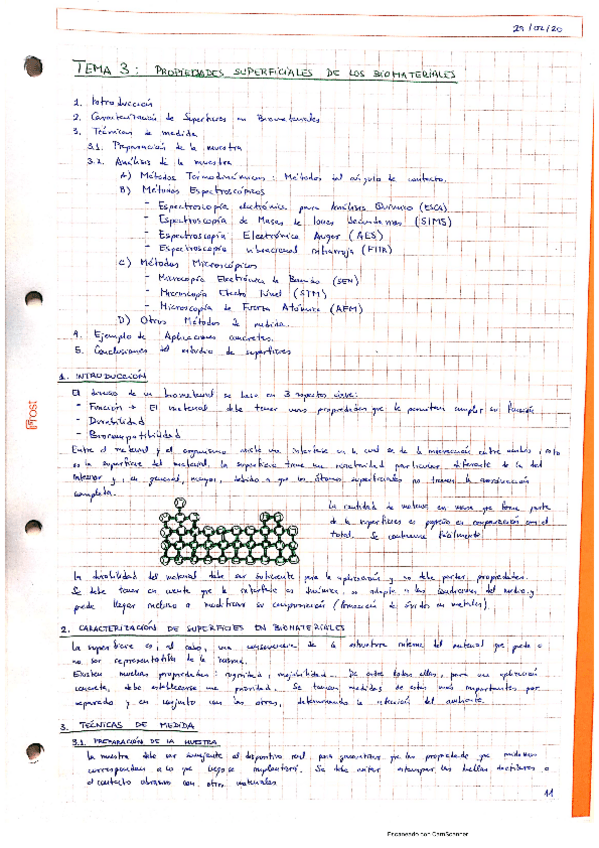 29/02/20
TEMA 3: PROPIEDADES SUPERFICIALES DE LOS BIOMATERIALES
1. Introducción
2. Caracterización de Superficies en Biomateriales
3. Técnicas de medida
3.1. Preparación de la muestra
3.2. Análisis de la muestra
A) Métodos Termodinámicos: Métodos del ángulo de contacto.
B) Métodos Espectroscópicos
- Espectroscopía electrónica para Análisis Químico (ESCA)
- Espectroscopía de Masas de Iones Secundarios (SIMS)
- Espectroscopía Electrónica Auger (AES)
- Espectroscopía vibracional infrarroja (FTIR)
C) Métodos Microscópicos
- Microscopía Electrónica de Barrido (SEM)
- Microscopía Efecto Túnel (STM)
- Microscopía de Fuerza Atómica (AFM)
D) Otros Métodos de medida.
4. Ejemplo de Aplicaciones concretas.
5. Conclusiones del estudio de superficies
1. INTRODUCCIÓN
El diseño de un biomaterial se basa en 3 aspectos clave:
- Función → El material debe tener unas propiedades que le permitan cumplir su función
- Durabilidad
- Biocompatibilidad
Entre el material y el organismo existe una interfase en la cual se da la interacción entre ambos, esto
es la superficie del material. La superficie tiene una reactividad particular diferente de la del
interior y, en general, mayor, debido a que los átomos superficiales no tienen la coordinación
completa.
La cantidad de materia en masa que forma parte
de la superficie es pequeña en comparación con el
total. Se contamina fácilmente
La durabilidad del material debe ser suficiente para la aplicación y no debe perder propiedades.
Se debe tener en cuenta que la interfase es dinámica, se adapta a las condiciones del medio y
puede llegar incluso a modificar su composición (formación de óxidos en metales).
2. CARACTERIZACIÓN DE SUPERFICIES EN BIOMATERIALES
La superficie es, al cabo, una consecuencia de la estructura interna del material que puede o
no ser representativa de la misma.
Existen muchas propiedades: rugosidad, mojabilidad... De entre todas ellas, para una aplicación
concreta, debe establecerse una prioridad. Se toman medidas de estas más importantes por
separado y en conjunto con las otras, determinando la relación del ambiente.
3. TÉCNICAS DE MEDIDA
3.1. PREPARACIÓN DE LA MUESTRA
La muestra debe ser semejante al dispositivo real, para garantizar que las propiedades que medimos
correspondan a lo que luego se implantará. Se debe evitar estampar las huellas dactilares o
el contacto abrasivo con otros materiales
11
Escaneado con CamScanner